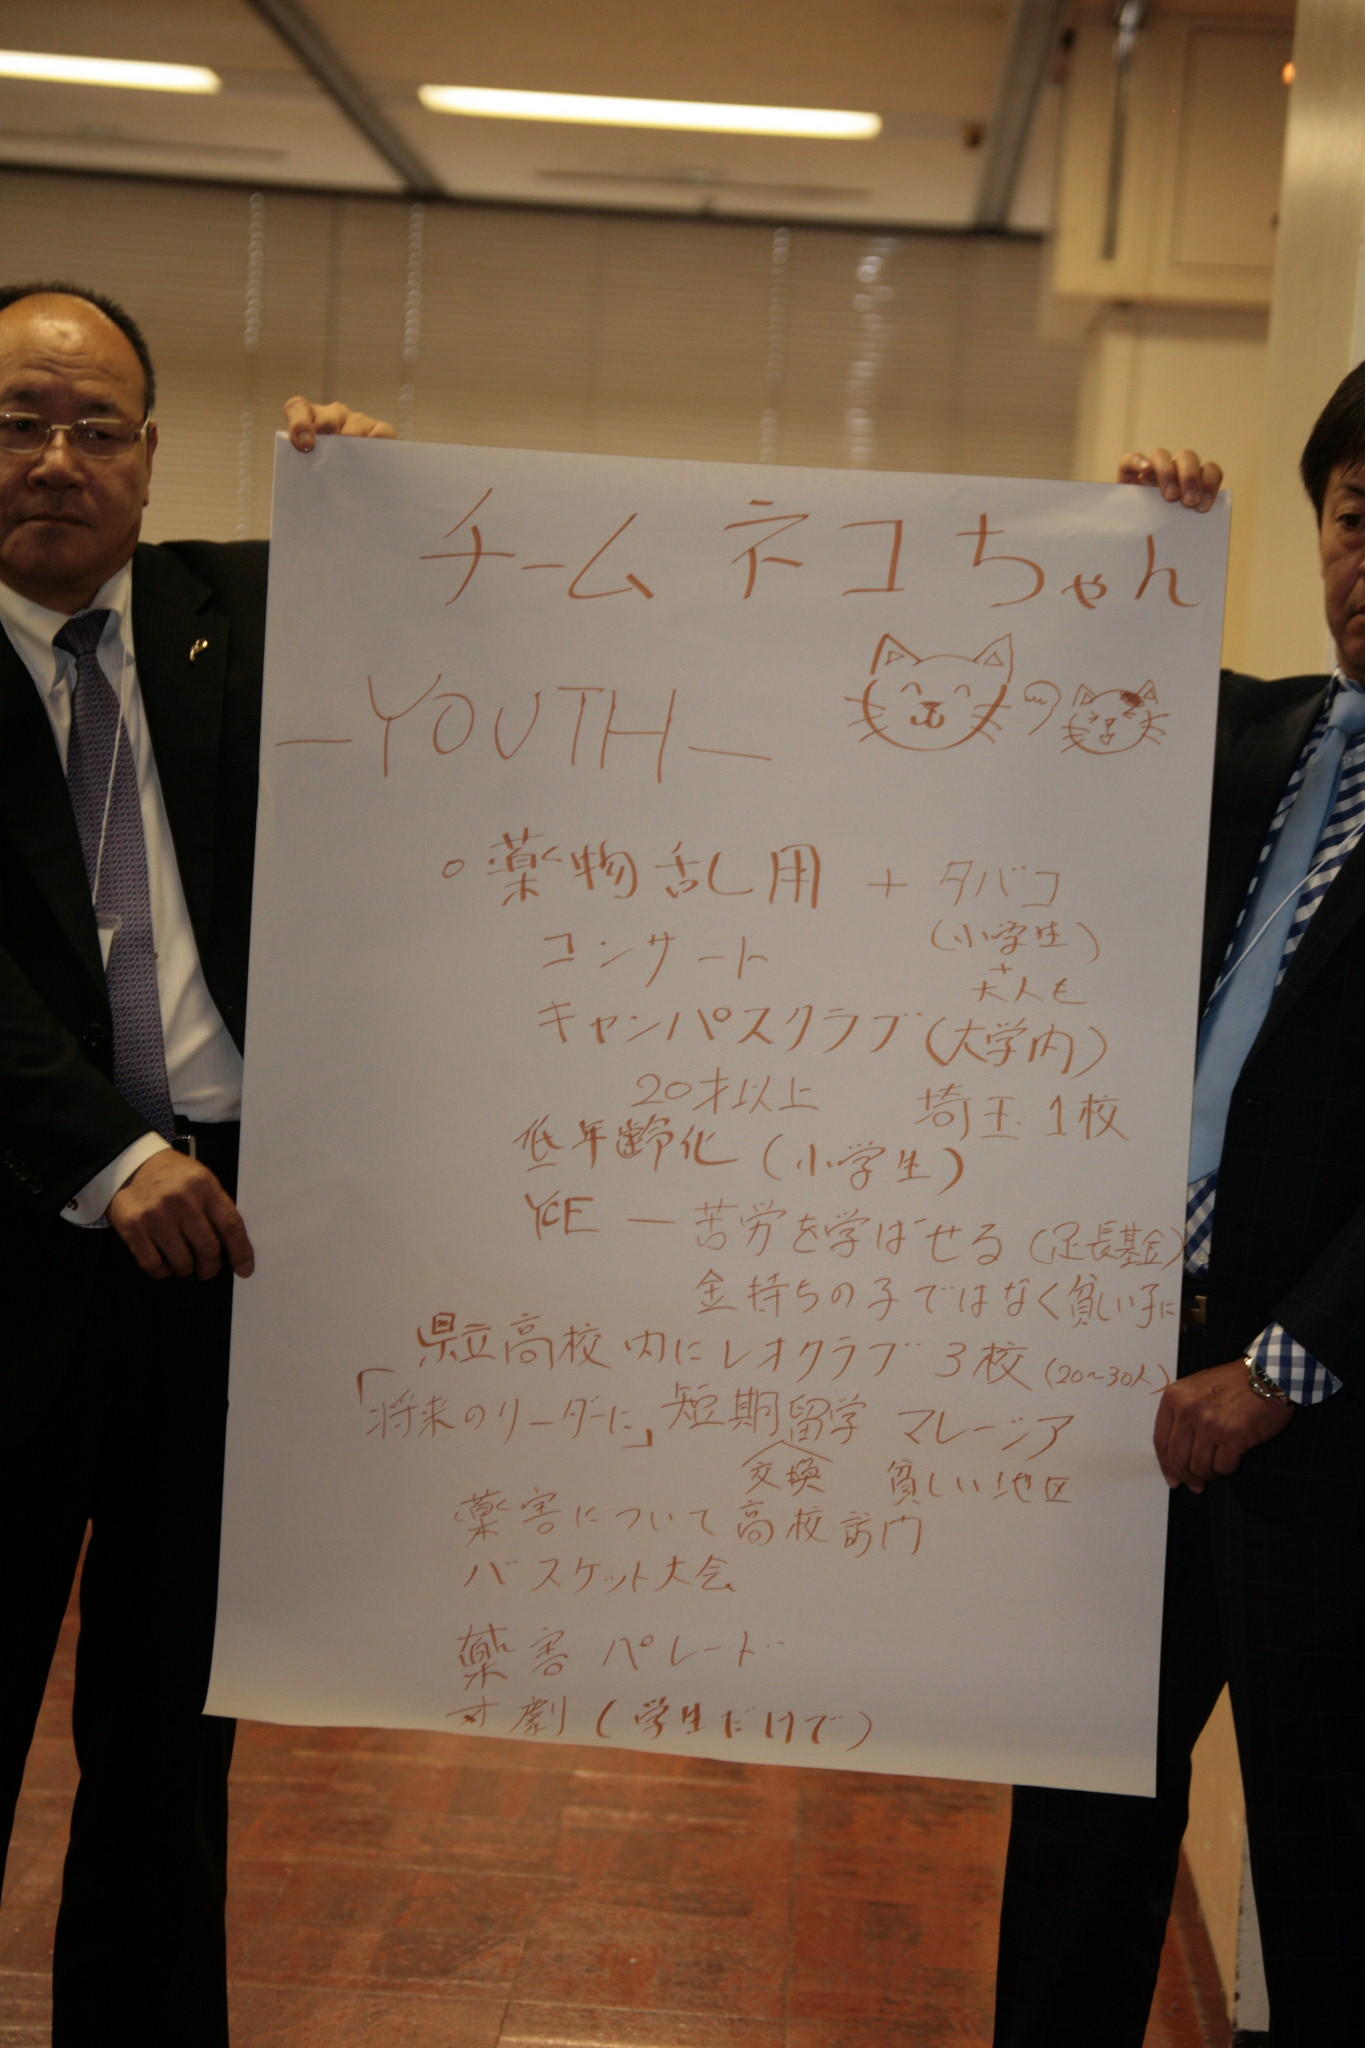 チーム ネコちゃん
—YOUTH—
○薬物乱用 + タバコ
(小学生)
大人も
コンサート
キャンパスクラブ(大学内)
20才以上 埼玉1校
低年齢化(小学生)
YCE — 苦労を学ばせる(足長基金)
金持ちの子ではなく貧しい子に
県立高校内にレオクラブ 3校(20~30人)
「将来のリーダーに」短期留学 マレーシア
交換 貧しい地区
薬害について高校訪問
バスケット大会
薬害 パレード
劇(学生だけで)